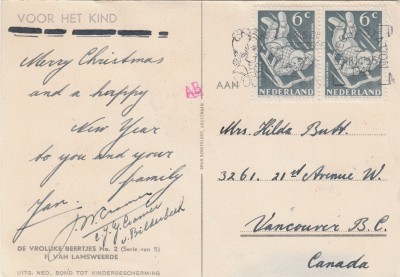 VOOR HET KIND
Merry Christmas
and a happy
New Year
to you and your
family
Jan.
J.W. Cramer
E.J.G. Cramer
v. Bilderbeek
DE VROLIJKE BEERTJES No. 2 (Serie van 5)
F. VAN LAMSWEERDE
UITG. NED. BOND TOT KINDERBESCHERMING
AB
6c
NEDERLAND
6c
NEDERLAND
AAN
Mrs. Hilda Butt
3261. 21st Avenue W.
Vancouver B.C.
Canada